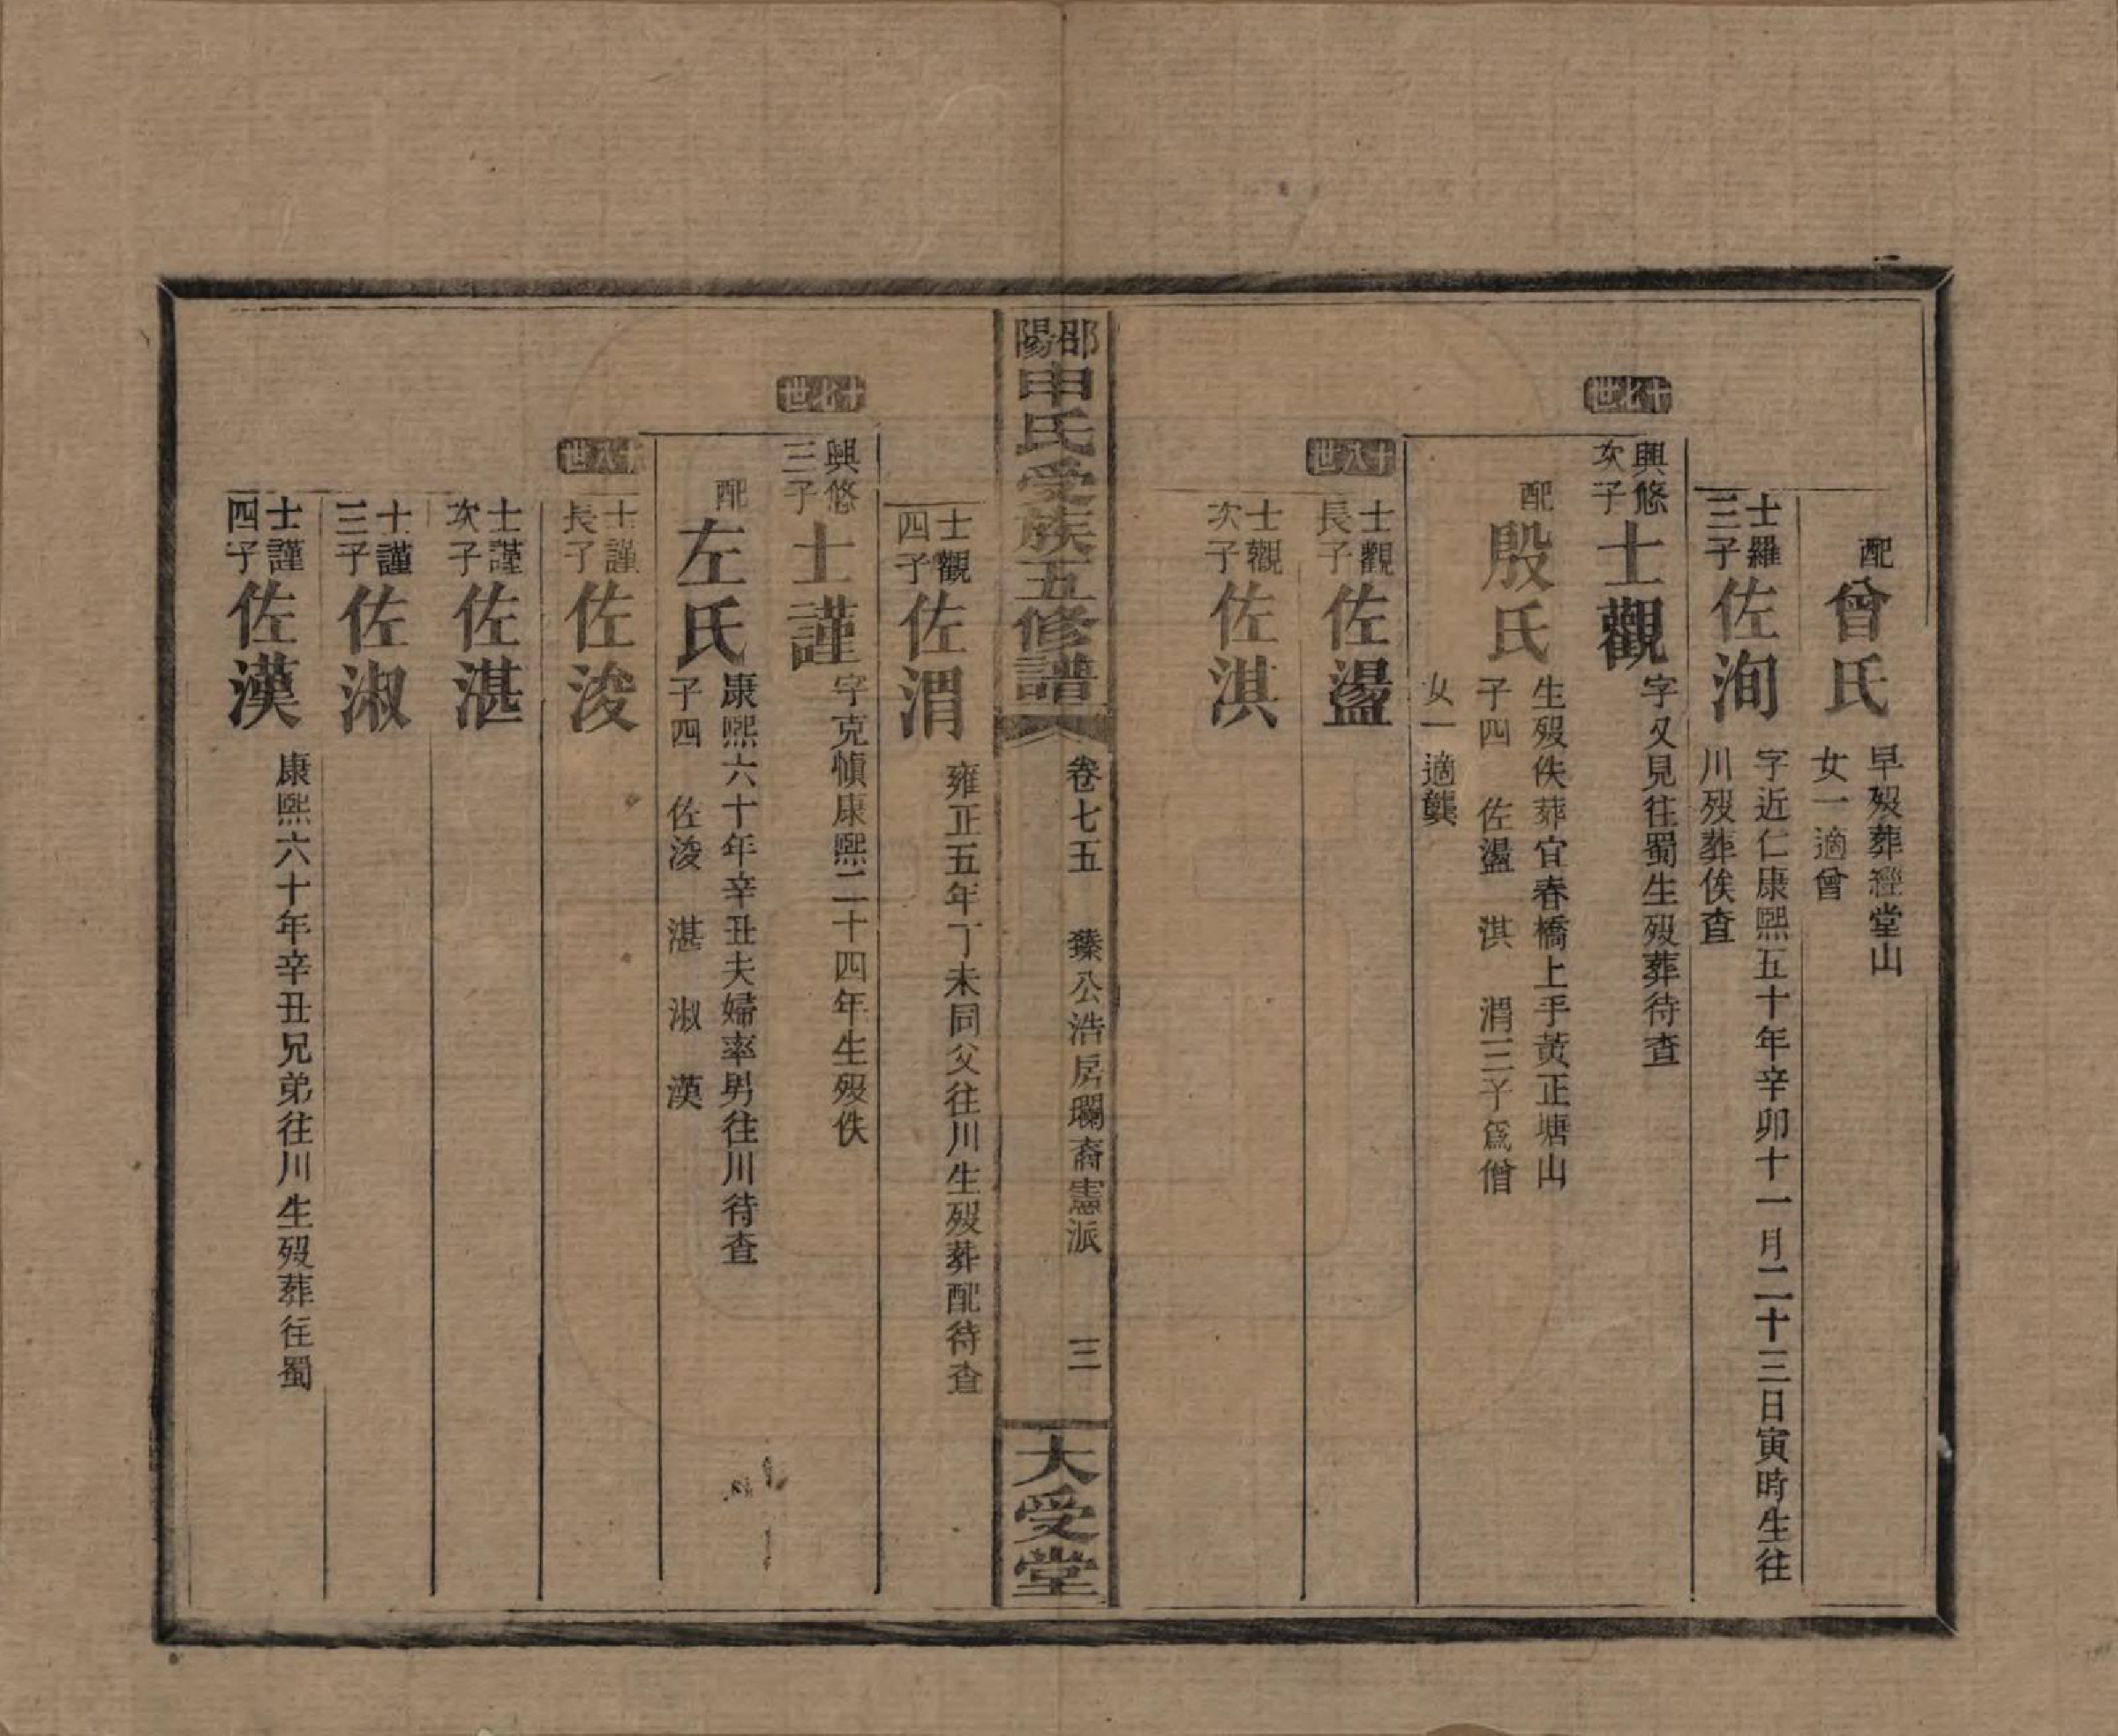 配曾氏
早歿葬經堂山
女一適曾
士羅三子佐洵
字近仁康熙五十年辛卯十一月二十三日寅時生往
川歿葬俟查
十七世
興悠次子士觀
字又見往蜀生歿葬待查
配殷氏
生歿佚葬宜春橋上手黃正塘山
子四 佐盪 淇 渭三子爲僧
女一適龔
十八世
士觀長子佐盪
士觀次子佐淇
邵陽申氏受族五修譜
卷七五 臻公浩房瓓裔憲派 三
大受堂
士觀四子佐渭
雍正五年丁未同父往川生歿葬配待查
十七世
興悠三子士謹
字克愼康熙二十四年生歿佚
配左氏
康熙六十年辛丑夫婦率男往川待查
子四 佐浚 湛 淑 漢
十八世
士謹長子佐浚
士謹次子佐湛
士謹三子佐淑
士謹四子佐漢
康熙六十年辛丑兄弟往川生歿葬在蜀